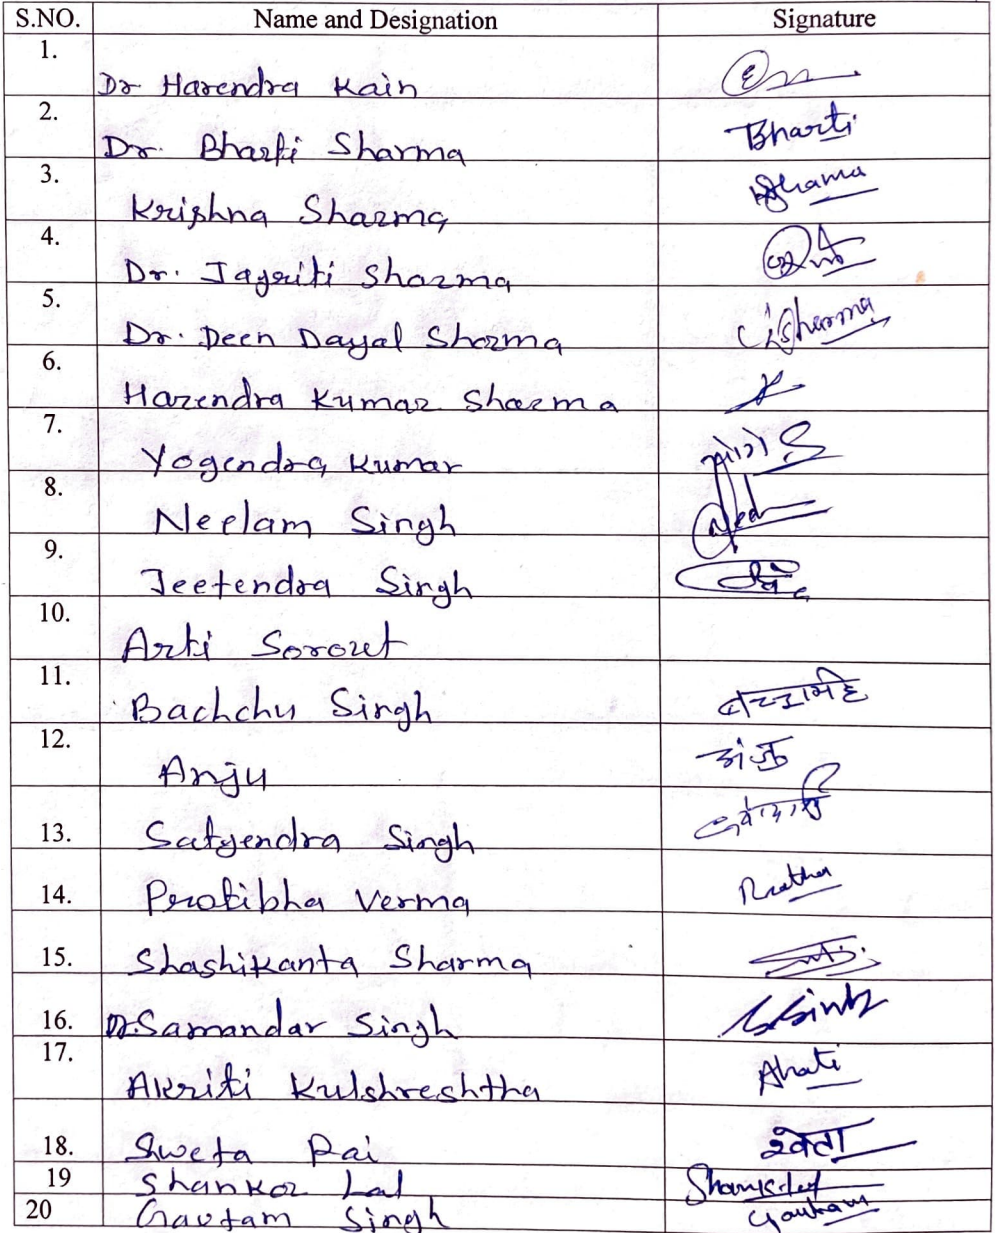 S.NO. Name and Designation Signature
1. Dr Harendra Kain
2. Dr. Bharti Sharma Bharti
3. Krishna Sharma Sharma
4. Dr. Jagriti Sharma
5. Dr. Deen Dayal Sharma Sharma
6. Harendra Kumar Sharma
7. Yogendra Kumar
8. Neelam Singh
9. Jeetendra Singh
10. Arti
11. Bachchu Singh
12. Anju अंजु
13. Satyendra Singh
14. Pratibha Verma
15. Shashikanta Sharma
16. Dr. Samandar Singh
17. Akriti Kulshreshtha
18. Sweta Rai श्वेता
19 Shankar Lal
20 Gautam Singh Gautam